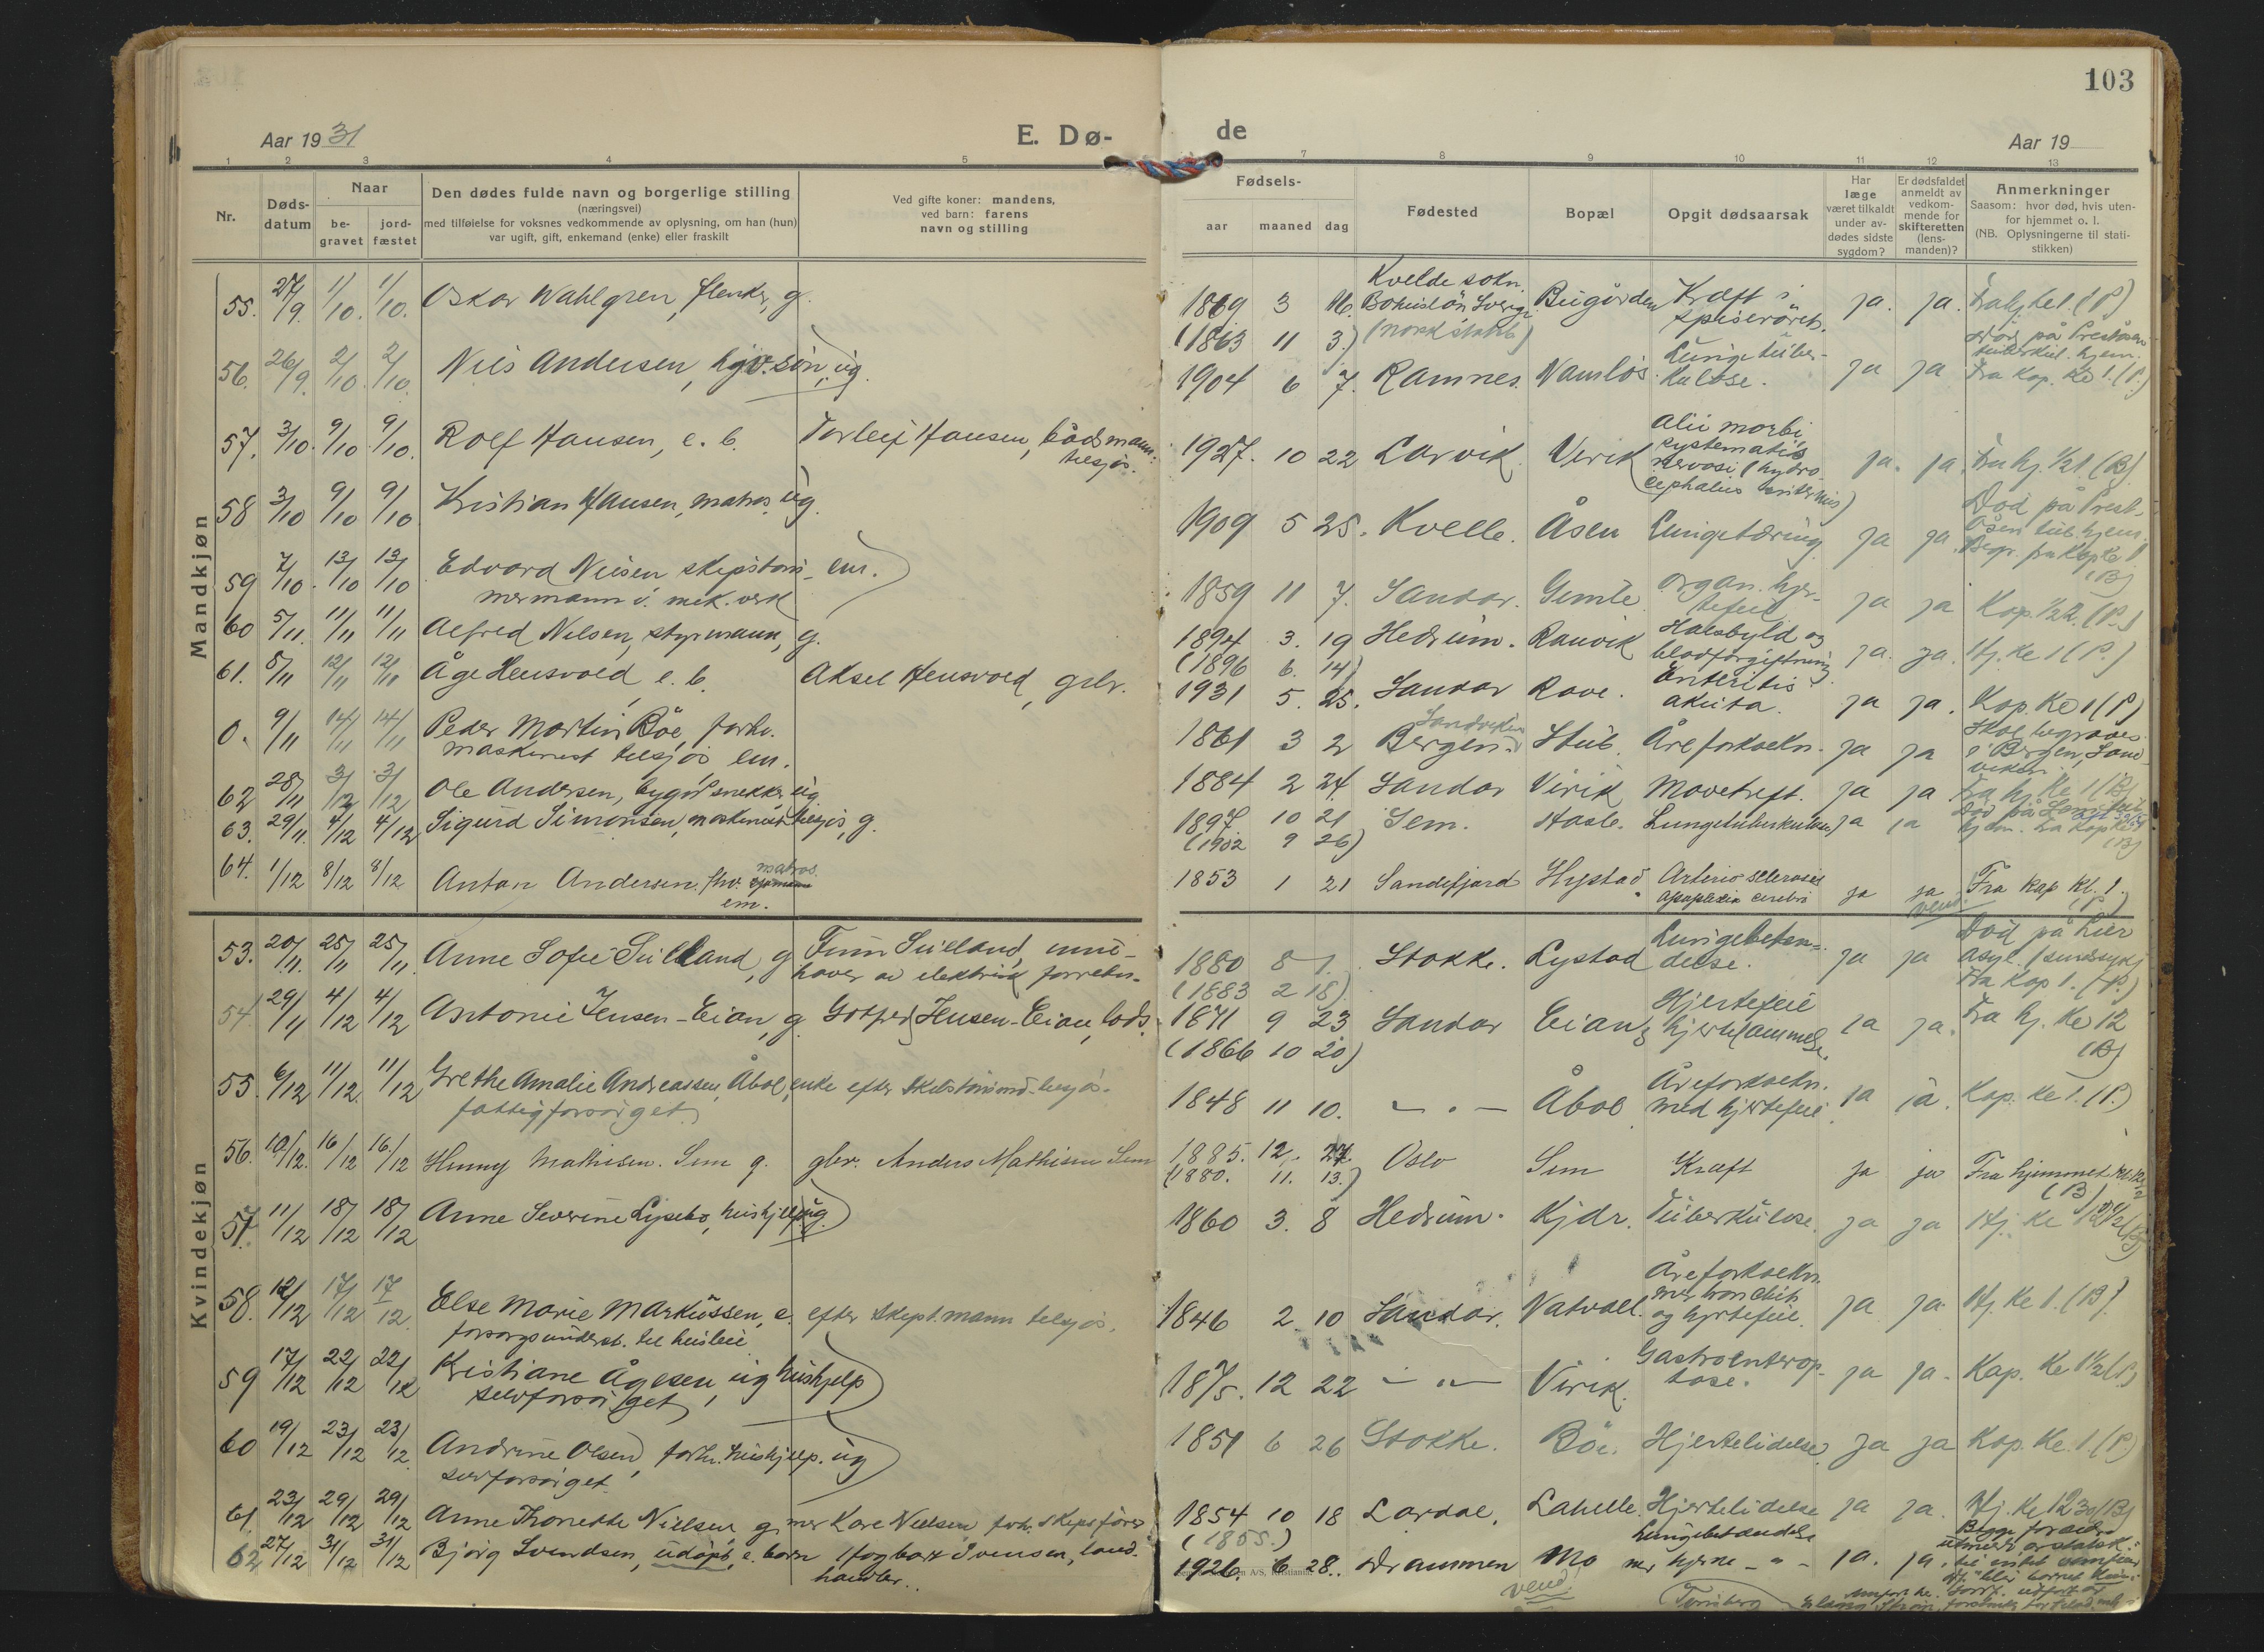 103
Aar 1931
E. Dø-
de
Aar 19
1 2 3 4 5 7 8 9 10 11 12 13
Nr.
Døds-
datum
Naar
be-
gravet
jord-
fæstet
Den dødes fulde navn og borgerlige stilling
(næringsvei)
med tilføielse for voksnes vedkommende av oplysning, om han (hun)
var ugift, gift, enkemand (enke) eller fraskilt
Ved gifte koner: mandens,
ved barn: farens
navn og stilling
Fødsels-
aar maaned dag
Fødested
Bopæl
Opgit dødsaarsak
Har
læge
været tilkaldt
under av-
dødes sidste
sygdom?
Er dødsfaldet
anmeldt av
vedkom-
mende for
skifteretten
(lens-
manden)?
Anmerkninger
Saasom: hvor død, hvis uten-
for hjemmet o. l.
(NB. Oplysningerne til stati-
stikken)
Mandkjøn
55. 27/9. 1/10. 1/10. Oskar Wahlgren, flenker, g.
1869 3 16. Kvelde sokn. Bohuslän Sverige Bugården Kræft i spiseröret. ja. ja. (P)
(1863 11 3.)
56. 26/9. 2/10. 2/10. Nils Andersen, ug.
1904 6 7. Ramnes. Namløs. Lungetuber-
kulose. ja ja Fra kap. kl 1. (P.)
57. 3/10. 9/10. 9/10. Rolf Hansen, e. b. Torleif Hansen, bådsmann
tilsjøs.
1927. 10 22 Larvik. Virik Alii morbi
systematis
nervosi (hydro
cephalus ja. ja. (B)
58 3/10 9/10 9/10 Kristian Hansen, matros. ug.
1909 5 25. Kvelle. Åsen Lungetæring ja ja. Död på Prest-
åsen tub. hjem.
(B)
59 7/10. 13/10 13/10 Edvard Nilsen skipstøm- em.
mermann i mek. verk
1859 11 7. Sandar. Gimle organ. hjer-
tefeil ja ja Kap. 1/2 2. (P.)
60 5/11. 11/11 11/11 Alfred Nilsen, styrmann, g.
1894 3. 19 Hedrum. Ranvik Halsbyld og
blodforgiftning ja. ja. Hj. kl 1 (P.)
(1896 6. 14)
61. 8/11 12/11 12/11 Åge Hensvold, e. b. Aksel Hensvold, gbr.
1931 5. 25. Sandar Rove. Enteritis
akuta. ja ja. Kap. kl 1 (P)
0. 9/11 14/11 14/11 Peder Martin Böe, forhv.
maskinist tilsjøs em.
1861 3 2 Sandviken Bergen. Stub. Åreforkalkn. ja ja Skal begraves
i Bergen, Sand-
viken.
62 28/11 3/12 3/12 Ole Andersen, bygn.snekker, ug
1884 2 24. Sandar Virik Mavekreft. ja ja. Fra hj. kl 1 (B)
63. 29/11. 4/12 4/12 Sigurd Simonsen, maskinist tilsjøs, g.
1897 10 21 Sem. Hasle. Lungetuberkulose, ja ja
(1902 9 26)
64. 1/12 8/12 8/12 Anton Andersen. fhv. matros.
em.
1853 1 21 Sandefjord Hystad Arterio sclerosis
Apoplexia cerebri ja ja Fra kap kl. 1.
(P)
vend.
Kvindekjøn
53. 20/11. 25/11 25/11. Anne Sofie Sulland, g. Finn Sulland, inne-
haver av elektrisk forretn.
1880 8 1. Stokke. Lystad Lungebeten-
delse. ja ja Död på Lier
asyl. (sinnssyk)
Fra kap 1. (P.)
(1883 2 18)
54. 29/11 4/12 4/12 Antonie Jensen-Eian, g. Gotfred Jensen-Eian, lods.
1871 9 23 Sandar Eian Hjertefeil
& hjertelammelse. ja ja. Fra hj. kl 12
(B)
(1866 10 20)
55. 6/12 11/12. 11/12 Grethe Amalie Andreassen, Åbol, enke efter tilsjøs.
fattigforsörget
1848 11 10. - " - Åbol Åreforkalkn.
med hjertefeil ja ja. Kap. kl 1. (P.)
56. 10/12. 16/12 16/12 Hinny Mathisen. Sem g. gbr. Anders Mathisen Sem
1885. 12. 27. Oslo Sem Kræft ja ja Fra hjemmet
(B)
(1880. 11. 13.)
57. 11/12 18/12 18/12 Anne Severine Lysebo, hushjelp, ug.
1860 3. 8 Hedrum. Kjær. Tuberkulose. ja ja Hj. kl
58. 12/12 17/12 17/12. Else Marie Markussen, e. efter skipst.mann tilsjøs.
forsorgsunderst. til husleie
1846 2. 10 Sandar. Natvall. Åreforkalkn.
og hjertefeil. ja ja. Hj. kl 1. (B).
59 17/12 22/12 22/12 Kristiane Ågesen, ug hushjelp
selvforsörget
1875. 12 22 - " - Virik. Gastroenterop-
tose. ja ja. Kap. kl 1 1/2 (P.)
60 19/12 23/12 23/12. Andrine Olsen, forhv. hushjelp. ug
selvforsörget.
1851 6 26 Stokke. Böe. Hjertelidelse ja ja Kap. kl. 1. (P)
61. 23/12 29/12 29/12 Anne Thorette Nielsen, g. m. Kare Nielsen forh. skipsförer
1854 10 18 Lardal. Lahelle. Hjertelidelse ja ja. Hj. kl 12 30 (B)
(1855.)
62 27/12 31/12 31/12 Bjørg Svendsen, udöpt, e. barn Hagbart Svensen, land-
handler.
1926. 6 28. Drammen Mo Lungebetændelse
m. hjerne - " - ja. ja.
vend.
Tønsberg